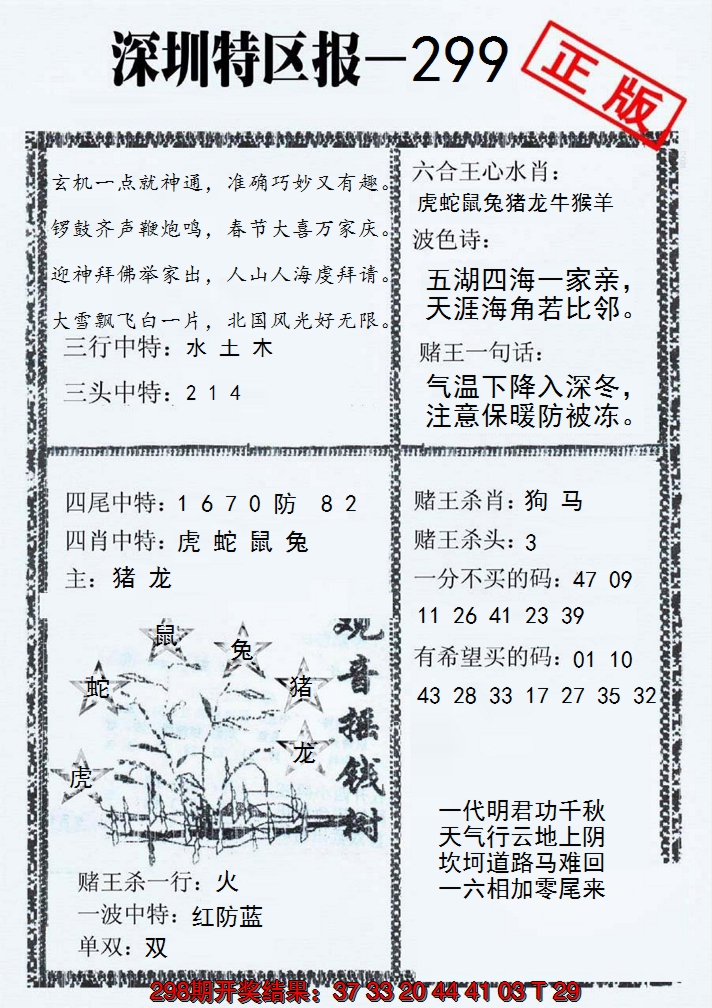 深圳特区报—299
正版
玄机一点就神通，准确巧妙又有趣。
锣鼓齐声鞭炮鸣，春节大喜万家庆。
迎神拜佛举家出，人山人海虔拜请。
大雪飘飞白一片，北国风光好无限。
三行中特：水 土 木
三头中特：2 1 4
六合王心水肖：
虎蛇鼠兔猪龙牛猴羊
波色诗：
五湖四海一家亲，
天涯海角若比邻。
赌王一句话：
气温下降入深冬，
注意保暖防被冻。
四尾中特：1 6 7 0 防 8 2
四肖中特：虎 蛇 鼠 兔
主：猪 龙
鼠
兔
蛇
猪
龙
虎
观音摇钱树
赌王杀一行：火
一波中特：红防蓝
单双：双
赌王杀肖：狗 马
赌王杀头：3
一分不买的码：47 09
11 26 41 23 39
有希望买的码：01 10
43 28 33 17 27 35 32
一代明君功千秋
天气行云地上阴
坎坷道路马难回
一六相加零尾来
298期开奖结果：37 33 20 44 41 03 T 29